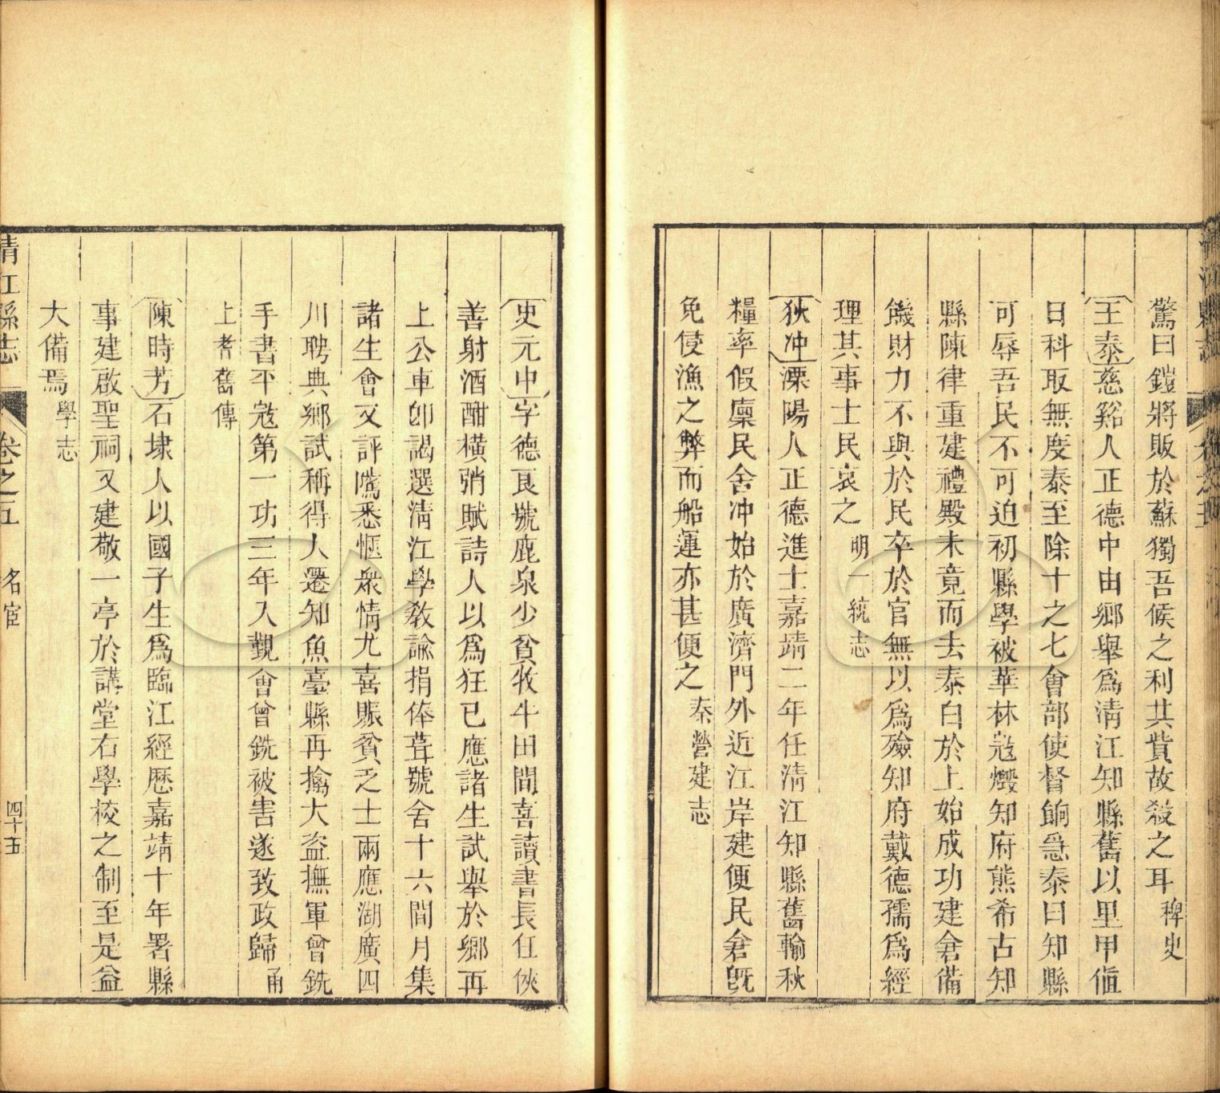 驚曰鎧將販於蘇獨吾候之利其貲故殺之耳 稗史
王泰慈谿人正德中由鄉舉爲清江知縣舊以里甲值
日科取無度泰至除十之七會部使督餉急泰曰知縣
可辱吾民不可迫初縣學被華林寇燬知府熊希古知
縣陳律重建禮殿未竟而去泰白於上始成功建倉備
饑財力不與於民卒於官無以爲殮知府戴德孺爲經
理其事士民哀之 明一統志
狄冲溧陽人正德進士嘉靖二年任清江知縣舊輸秋
糧率假廩民舍冲始於廣濟門外近江岸建便民倉旣
免侵漁之弊而船運亦甚便之 秦營建志
史元中字德良號鹿泉少貧牧牛田間喜讀書長任俠
善射酒酣橫弰賦詩人以爲狂已應諸生試舉於鄉再
上公車卽謁選清江學敎諭捐俸葺號舍十六間月集
諸生會文評騭悉愜衆情尤喜賑貧乏士兩應湖廣四
川聘典鄉試稱得人遷知魚臺縣再擒大盜撫軍曾銑
手書平寇第一功三年入覲會曾銑被害遂致政歸 甬
上耆舊傳
陳時芳石埭人以國子生爲臨江經歷嘉靖十年署縣
事建啟聖祠又建敬一亭於講堂右學校之制至是益
大備焉 學志
清江縣志 卷之五 名宦 四十五